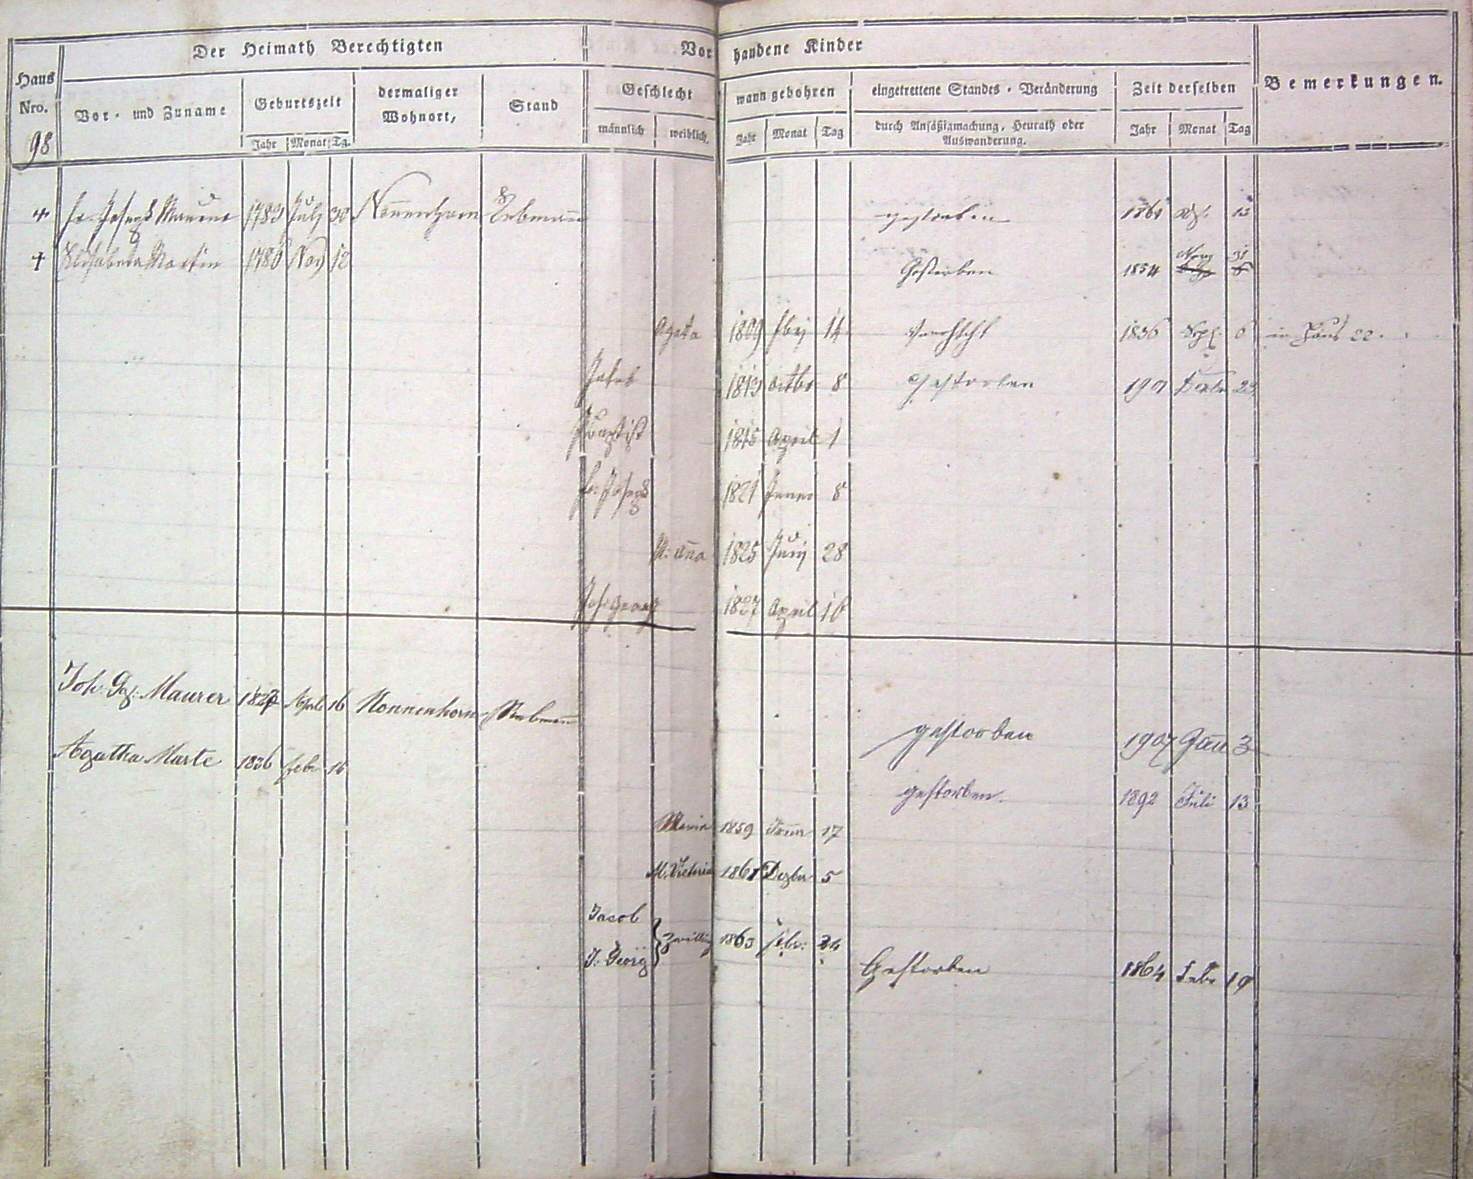 Der Heimath Berechtigten
Vorhandene Kinder
Bemerkungen.
Haus Nro.
Vor- und Zuname
Geburtszeit
dermaliger Wohnort,
Stand
Geschlecht
wann gebohren
eingetrettene Standes-Veränderung
Zeit derselben
Jahr Monat Tg.
männlich weiblich.
Jahr Monat Tag
durch Ansäßigmachung, Heurath oder Auswanderung.
Jahr Monat Tag
98
Joseph Maurer 1783 July 30 Nonnenhorn Rebmann gestorben 13
Elisabetha Martin 1786 Nov 12 Gestorben 1854
Agatha 1809 14 1836 Sep. 6 in Haus 22.
Jakob 1813 octbr 8 Gestorben
Baptist 1815 April 1
Joseph 1821 Jener 8
M. Anna 1825 Juny 28
Joh. Georg 1827 April 16
Joh. Gg. Maurer 1827 Aprl 16 Nonnenhorn Rebmann gestorben 1907 3
Agatha Marte 1836 Febr 16 gestorben. 1892 Juli 13
Maria 1859 17
M. Victoria 1861 Dezbr 5
Jacob
Zwilling 1863 Febr: 24
J. Georg
Gestorben 1864 Febr 19